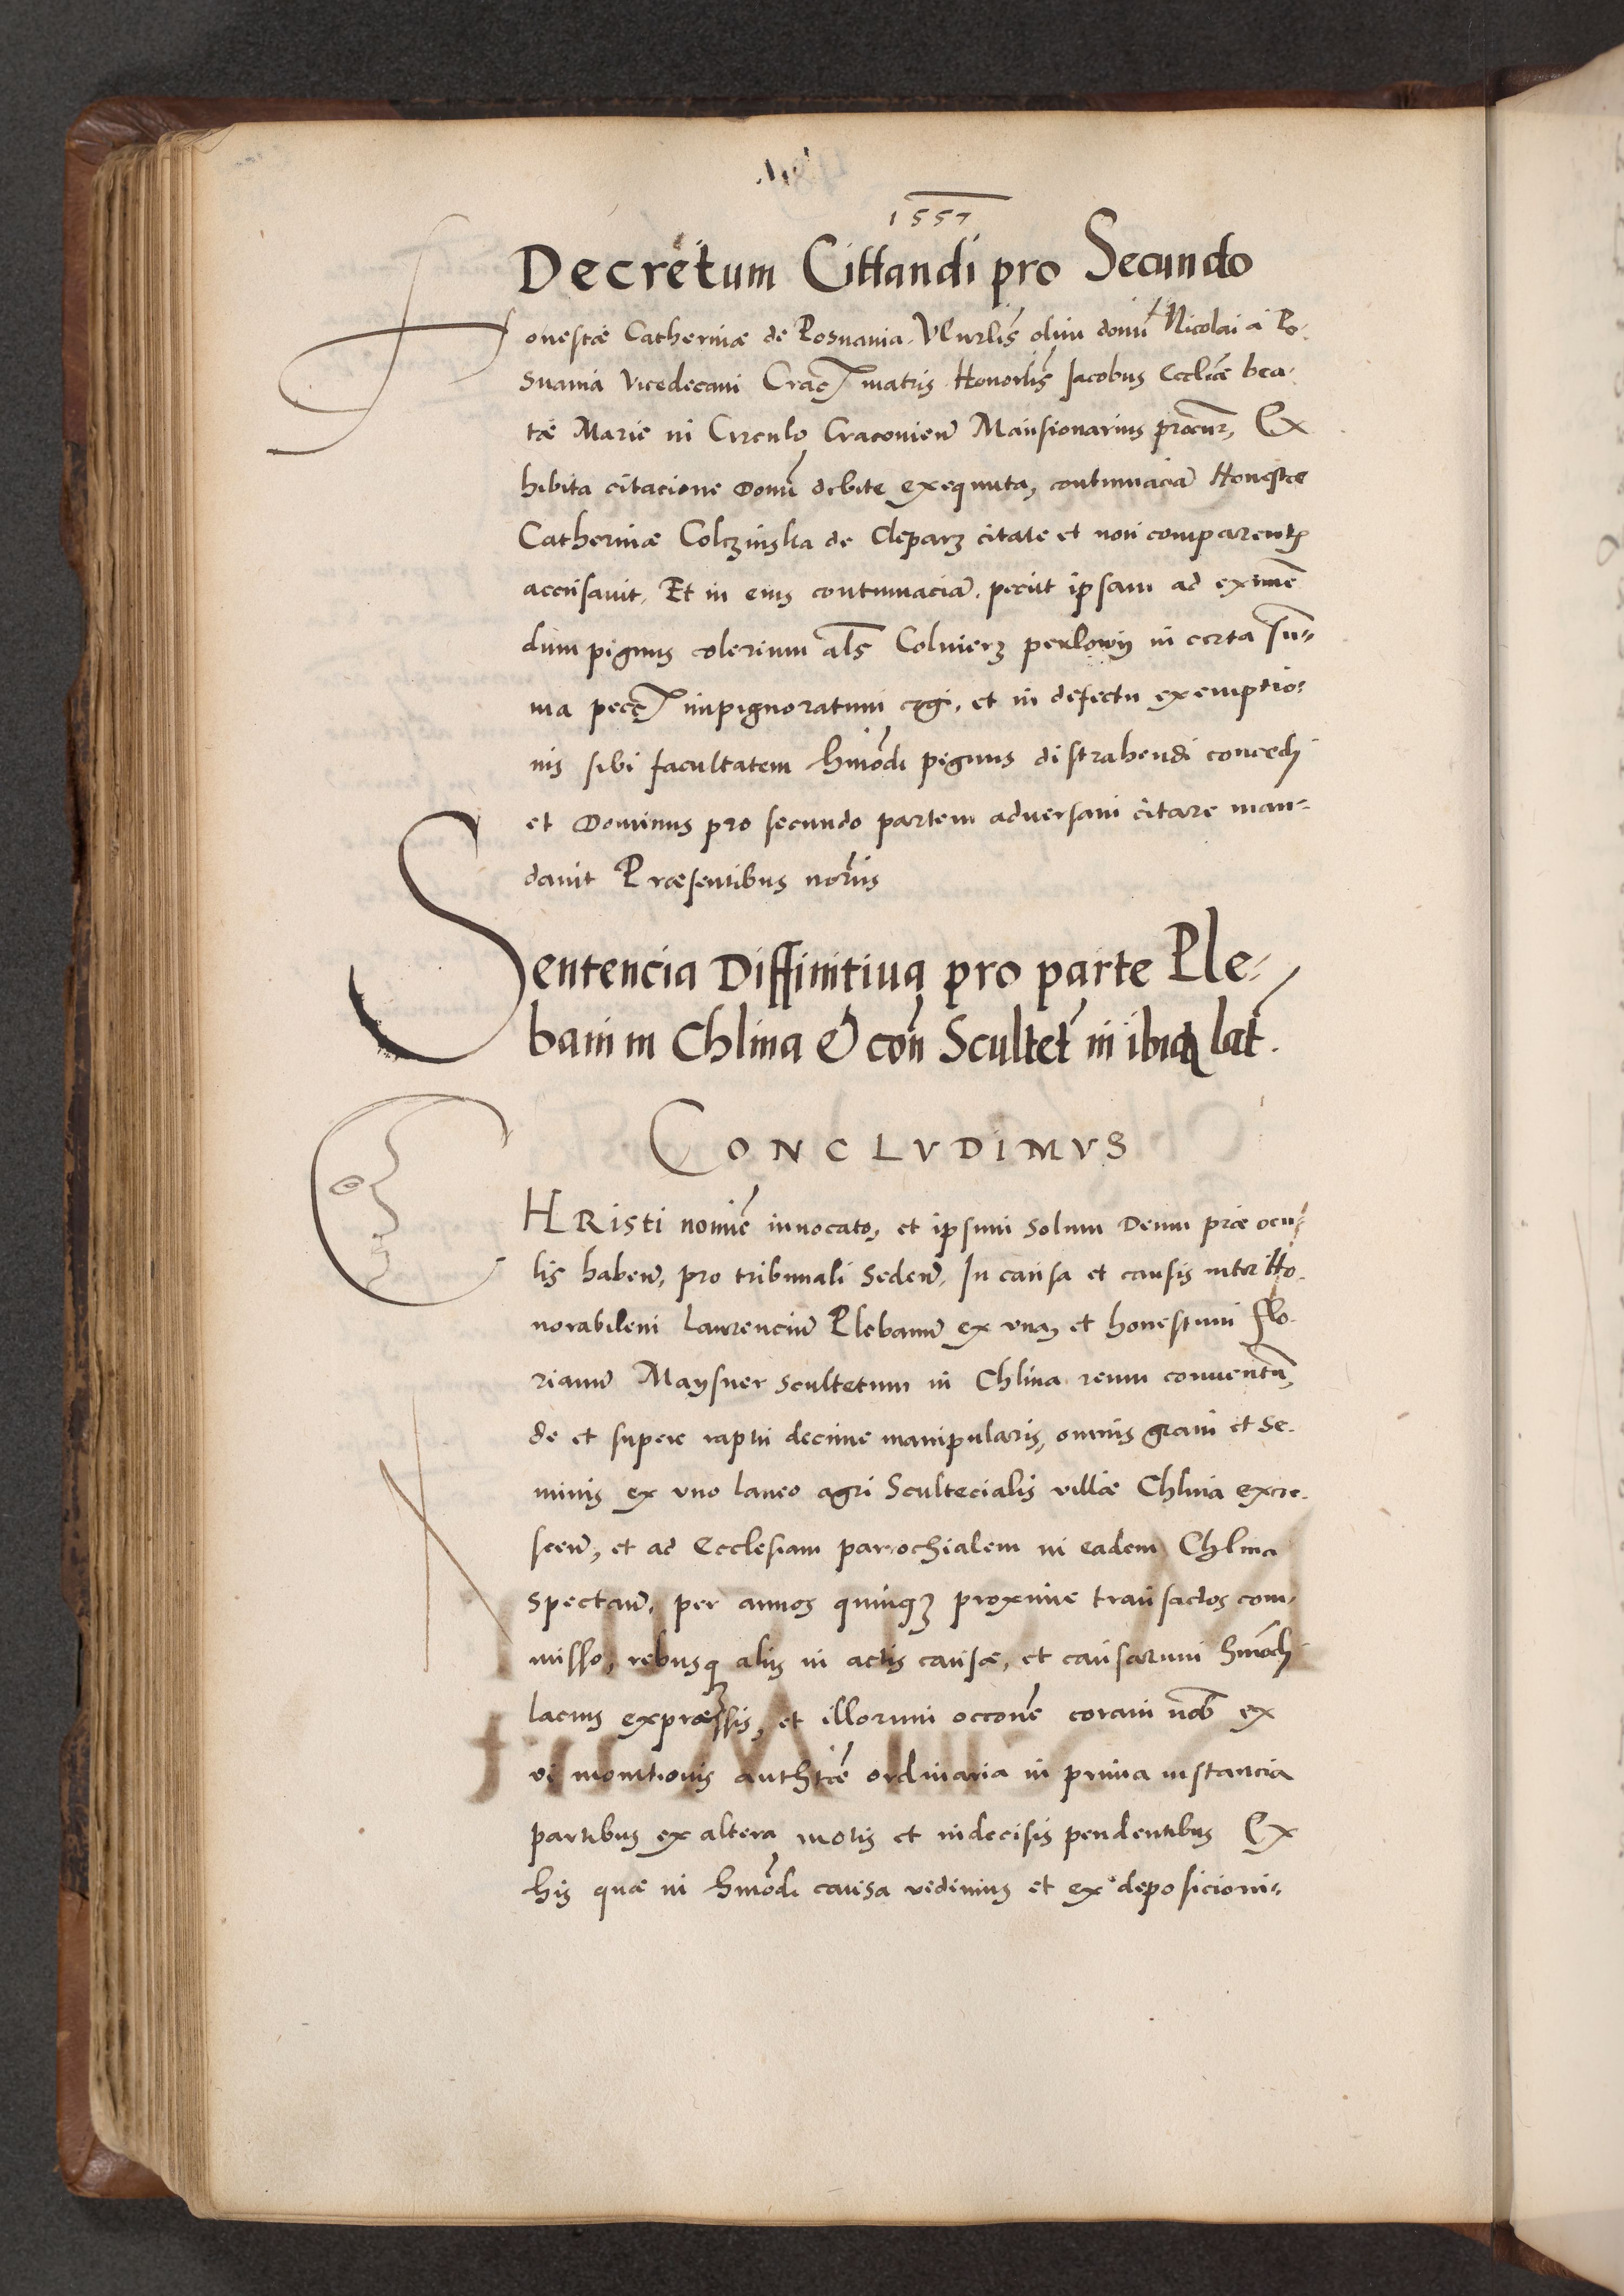 1557
Decretum Cittandi pro Secundo
Honestæ Catherinæ de Posnania Vnrlis olim domi Nicolai a Po-
snania Vicedecani Crac matris Honorlis Jacobus Ecclæ bea-
tæ Marie in Circulo Cracovien Mansionarius procur, Ex
hibita citacione Domi debite exequuta, contumaciā Honestæ
Catherinæ Colczinska de Cleparz citate et non comparentis
accusavit, Et in eius contumaciā, petiit ipsam ad eximē
dum pignus colerium als Colnierz perlowy in certa sum-
ma pecc impignoratum cogi, et in defectu exemptio-
nis sibi facultatem hmodi pignus distrahendi concedi
et Dominus pro secundo partem adversam citare man-
davit Præsentibus noriis
Sentencia Diffinitiva pro parte Ple-
bani in Chlina & con Scultet in ibidq lat.
CONCLVDIMVS
CHRisti nomīe invocato, et ipsum solum Deum præ ocu-
lis haben, pro tribunali seden, In causa et causis inter Ho-
norabilem Laurenciū Plebanū ex vna, et honestum Flo-
rianū Maysner scultetum in Chlina reum conventū,
de et super raptu decime manipularis, omnis grani et se-
minis ex vno laneo agri Scultecialis villæ Chlina excre-
scen, et ad Ecclesiam parrochialem in eadem Chlina
spectan, per annos quinqz proxime transactos com-
misso, rebusq aliis in actis causæ, et causarum hmodi
lacius expræssis, et illorum occone coram nob ex
vi monitionis authtæ ordinaria in prima instancia
partibus ex altera motis et indecisis pendentibus Ex
his quæ in hmodi causa vidimus et ex deposicioni-